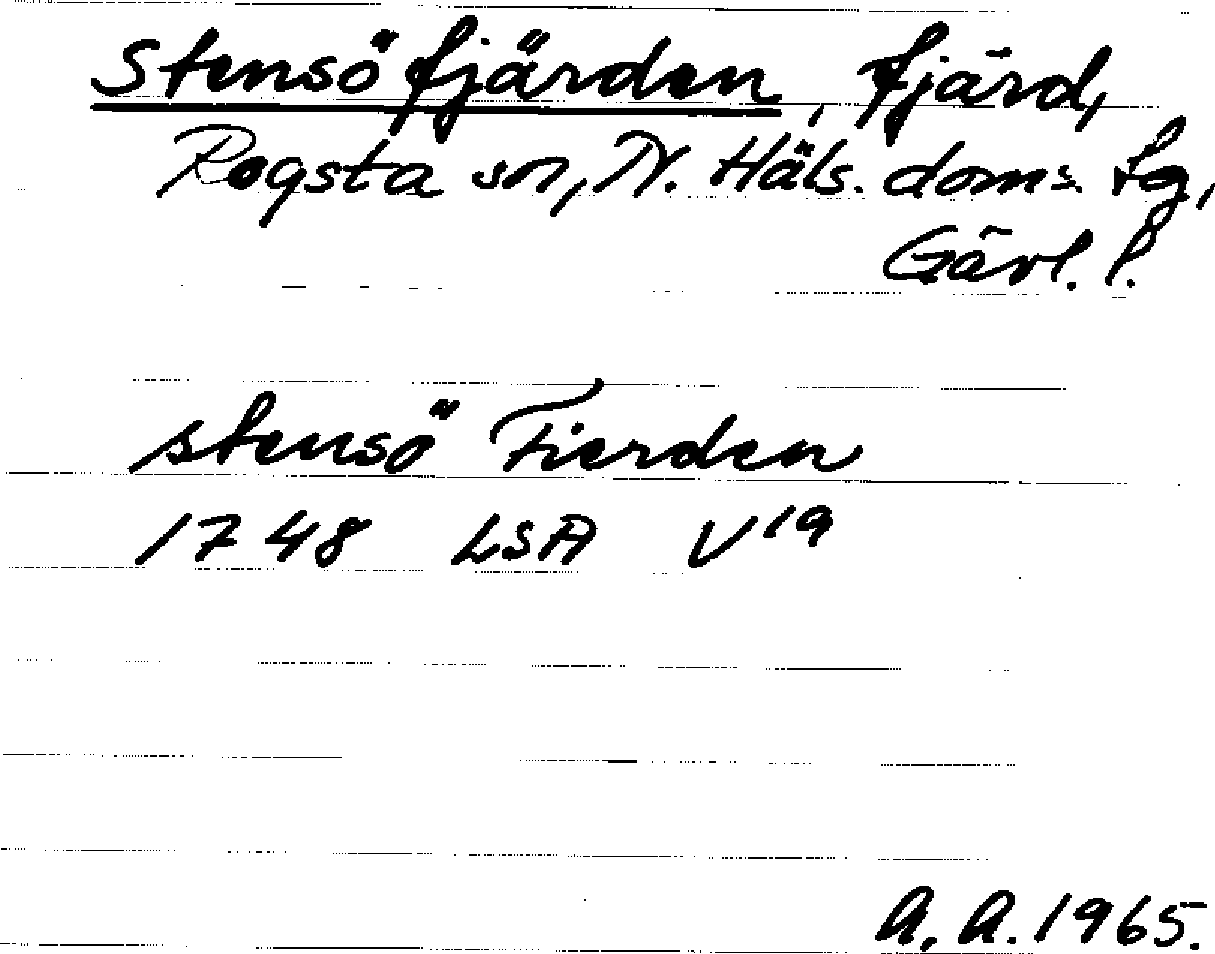 Stensöfjärden, fjärd,
Rogsta sn, N. Häls. doms. tg,
Gävl. l.
stensö Fierden
1748 LSA V19
A. A. 1965.